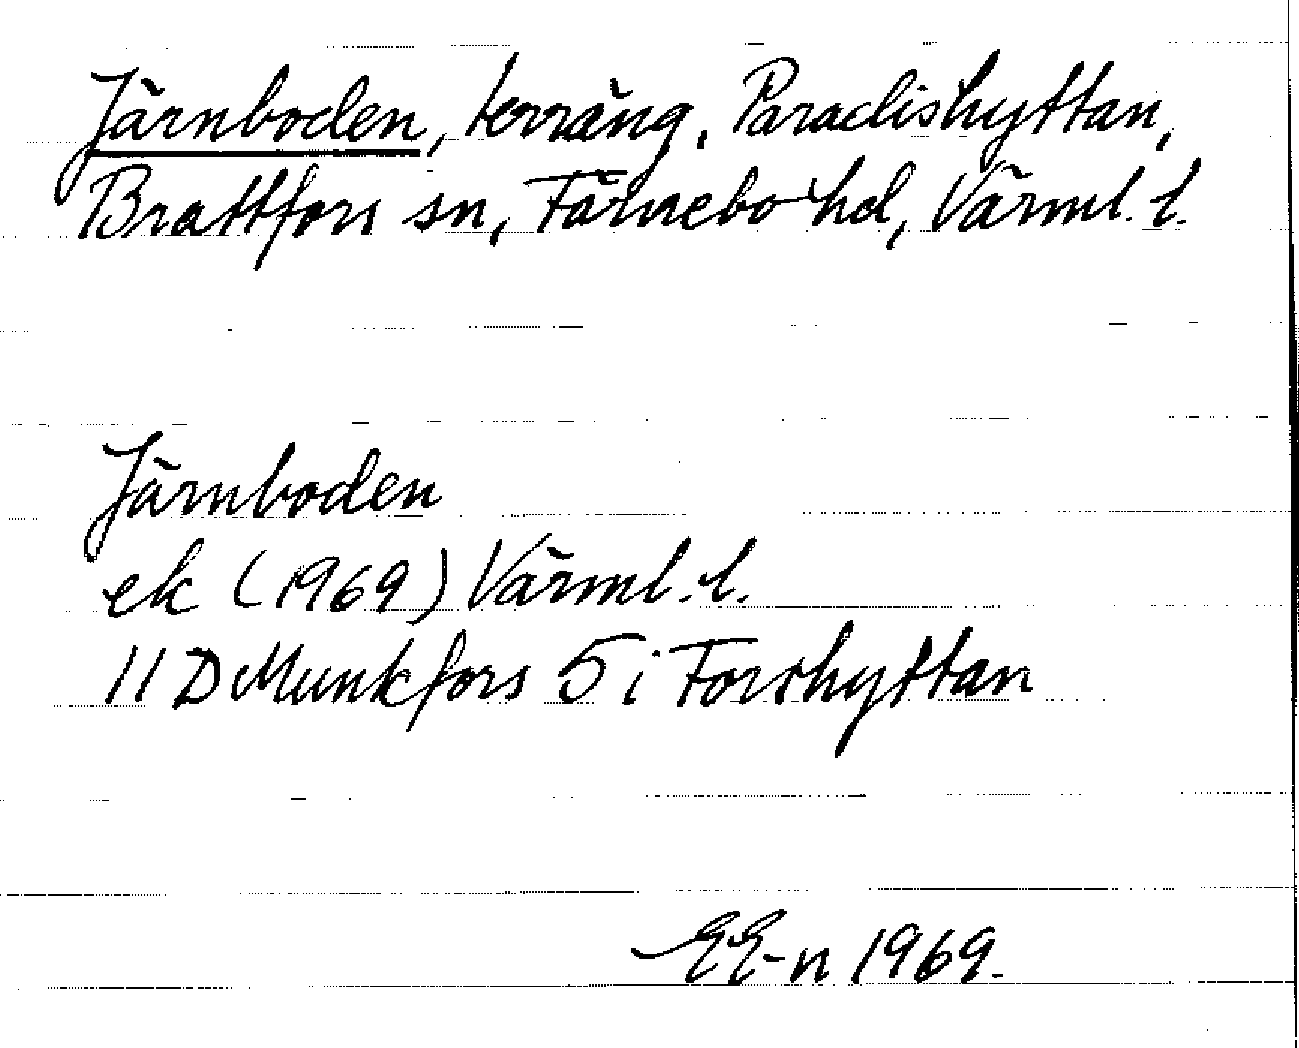 Järnboden, terräng, Paradishyttan,
Brattfors sn, Färnebo hd, Värml. l.
Järnboden
ek (1969) Värml. l.
11 D Munkfors 5 i Forshyttan
EE-n 1969.